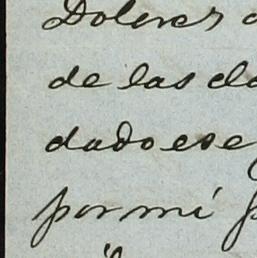 Dolores
de las
dado ese
por mí